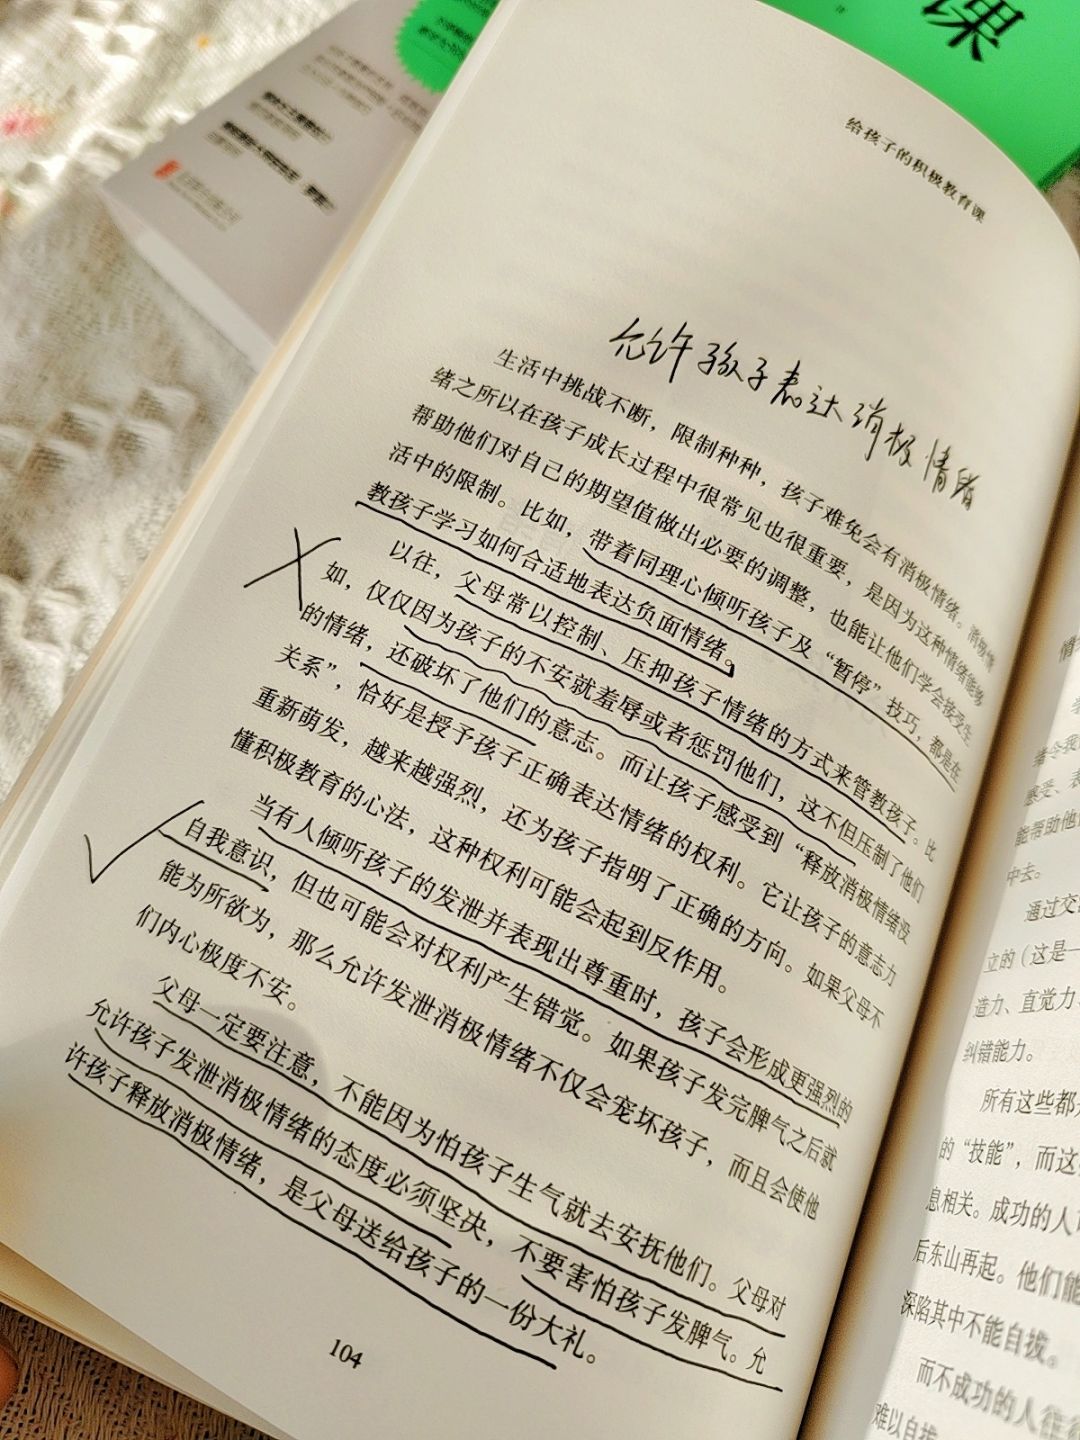 课
给孩子的积极教育课
允许孩子表达消极情绪
生活中挑战不断，限制种种，孩子难免会有消极情绪。消极情
绪之所以在孩子成长过程中很常见也很重要，是因为这种情绪能够
帮助他们对自己的期望值做出必要的调整，也能让他们学会接受生
活中的限制。比如，带着同理心倾听孩子及“暂停”技巧，都是在
教孩子学习如何合适地表达负面情绪。
以往，父母常以控制、压抑孩子情绪的方式来管教孩子。比
如，仅仅因为孩子的不安就羞辱或者惩罚他们，这不但压制了他们
的情绪，还破坏了他们的意志。而让孩子感受到“释放消极情绪没
关系”，恰好是授予孩子正确表达情绪的权利。它让孩子的意志力
重新萌发，越来越强烈，还为孩子指明了正确的方向。如果父母不
懂积极教育的心法，这种权利可能会起到反作用。
当有人倾听孩子的发泄并表现出尊重时，孩子会形成更强烈的
自我意识，但也可能会对权利产生错觉。如果孩子发完脾气之后就
能为所欲为，那么允许发泄消极情绪不仅会宠坏孩子，而且会使他
们内心极度不安。
父母一定要注意，不能因为怕孩子生气就去安抚他们。父母对
允许孩子发泄消极情绪的态度必须坚决，不要害怕孩子发脾气。允
许孩子释放消极情绪，是父母送给孩子的一份大礼。
104
绪令我
感受、表
能帮助他
中去。
通过交
立的（这是一
造力、直觉力
纠错能力。
所有这些都
的“技能”，而这
息相关。成功的人
后东山再起。他们能
深陷其中不能自拔。
而不成功的人往往
难以自拔